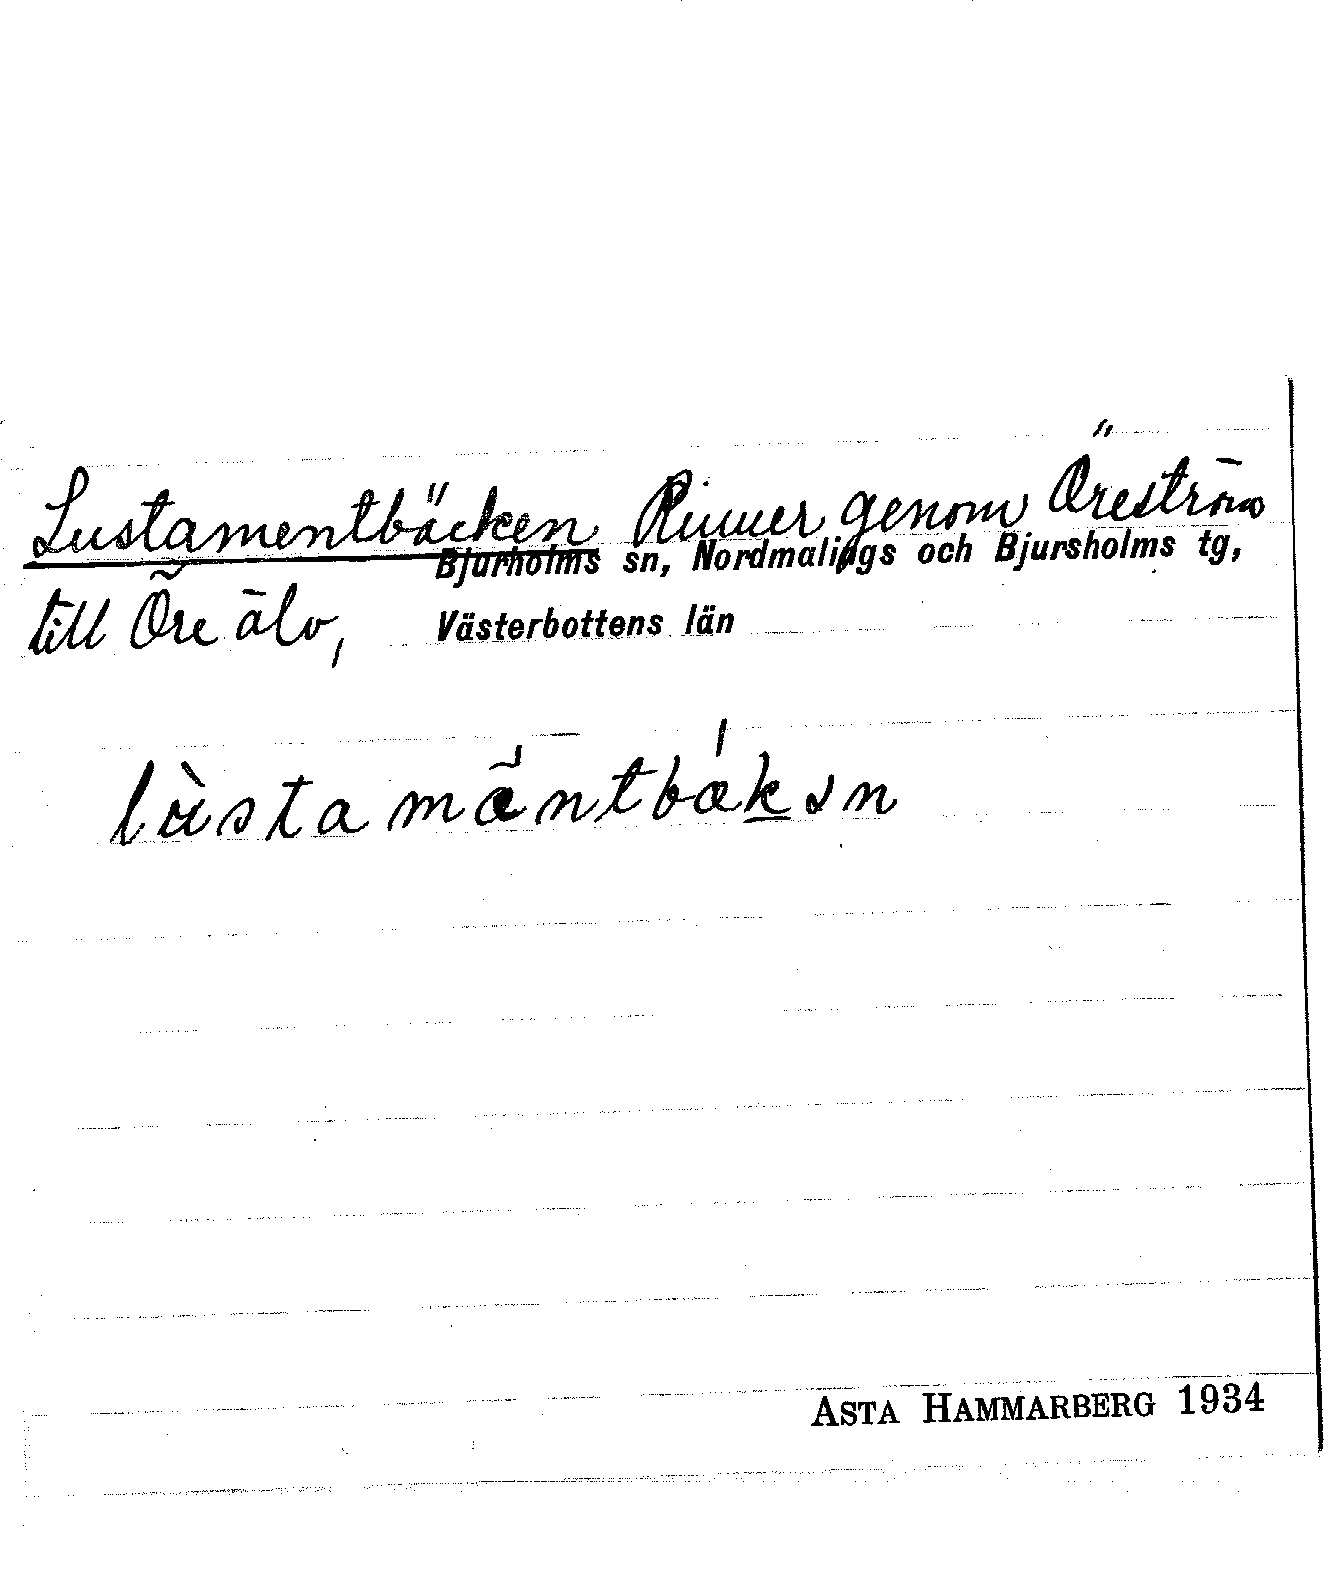 Lustamentbäcken Rinner genom Öreström
Bjurholms sn, Nordmalings och Bjursholms tg,
till Öre älv, Västerbottens län
lùstamæ̆ntbækən
ASTA HAMMARBERG 1934